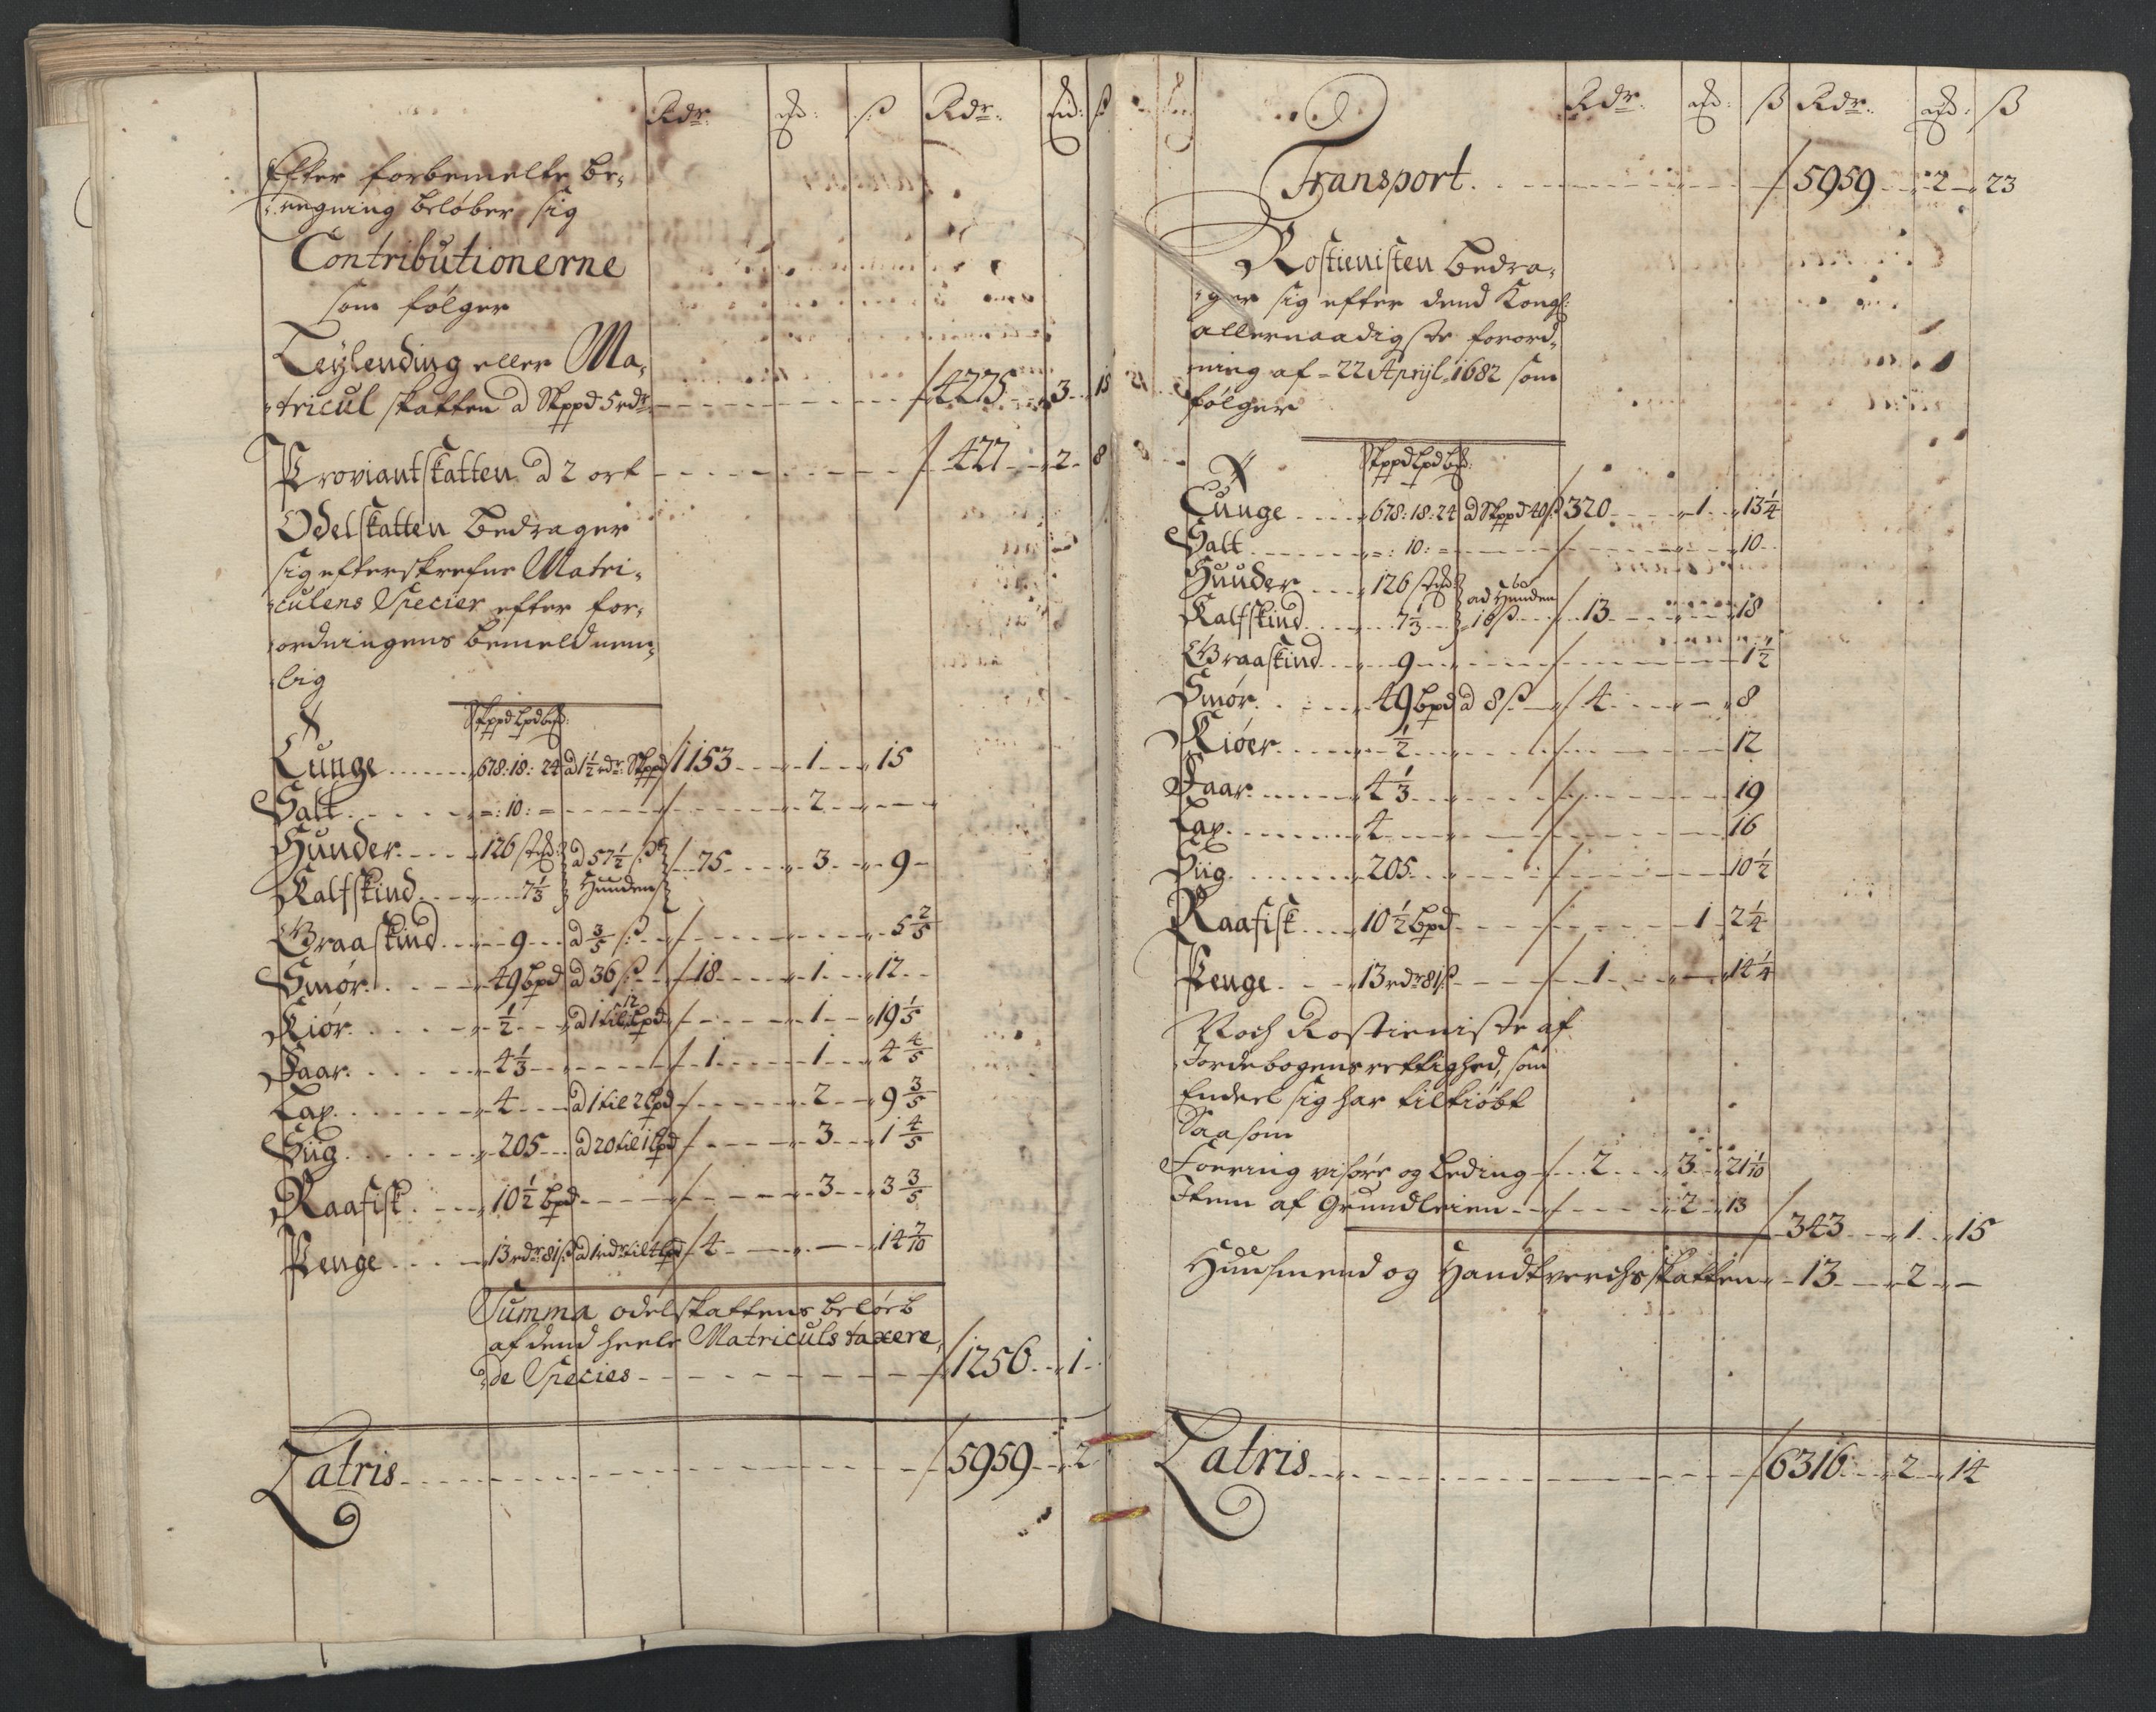 Rdr. ß Rdr. ß
Efter forbemelte be-
regning beløber sig
Contributionerne
som følger
Leylending eller Ma-
tricul skatten a Skppd 5 rdr. 4275 3 15
Proviantskatten a 2 ort 427 2 8
Odelskatten bedrager
sig efterskrefne Matri-
culens Specier efter for-
ordningens bemeld nem-
lig
Skppd Lpd
Tunge 678: 18: 24 a 1½ rdr: Skppd 1153 1 15
Salt =: 10: = 2 —
Huuder 126 a 57½ ß 75 3 9
Kalfskind 7⅓ Huuden
Graaskind 9 a 3/5 ß 5 2/5
Smør 49 bpd a 36 ß 18 1 12
Kiør ½ a 1 til 12 Lpd 1 19 1/5
Faar 4⅓ 1 1 4 4/5
Lax 4 a 1 til 2 bpd 2 9 3/5
Siig 205 a 20 til 1 bpd 3 1 4/5
Raafisk 10½ bpd 3 3 3/5
Penge 13 rdr 81 ß a 1 rdr til 4 bpd 4 — 14 7/10
Summa odelskattens beløeb
af dend heele Matriculs taxere-
de Species 1256 1
Latris 5959 2
Rdr. ß Rdr. ß
Transport 5959 2 23
Rostienisten bedra-
ger sig efter dend Kongl:
allernaadigste forord-
ning af 22 Aprijl 1682 som
følger
Skppd Lpd
Tunge 678: 18: 24 a Skppd 40 ß 320 1 13¼
Salt =: 10: = 10
Huuder 126 ad Huuden
Kalfskind 7⅓ 10 ß 13 18
Graaskind 9 1½
Smør 49 bpd a 8 ß 4 — 8
Kiøer ½ 12
Faar 4⅓ 19
Lax 4 16
Siig 205 10½
Raafisk 10½ bpd 1 2¼
Penge 13 rdr 81 ß 1 — 14¼
Noch Rostieniste af
Jordebogens rettighed, som
Endeel sig har tilkiøbt
Saasom
Foering visøre og Leding 2 3 21 1/10
Item af Grundleien 2 13
343 1 15
Huusmend og Handtverchs skatten 13 2 —
Latris 6316 2 14